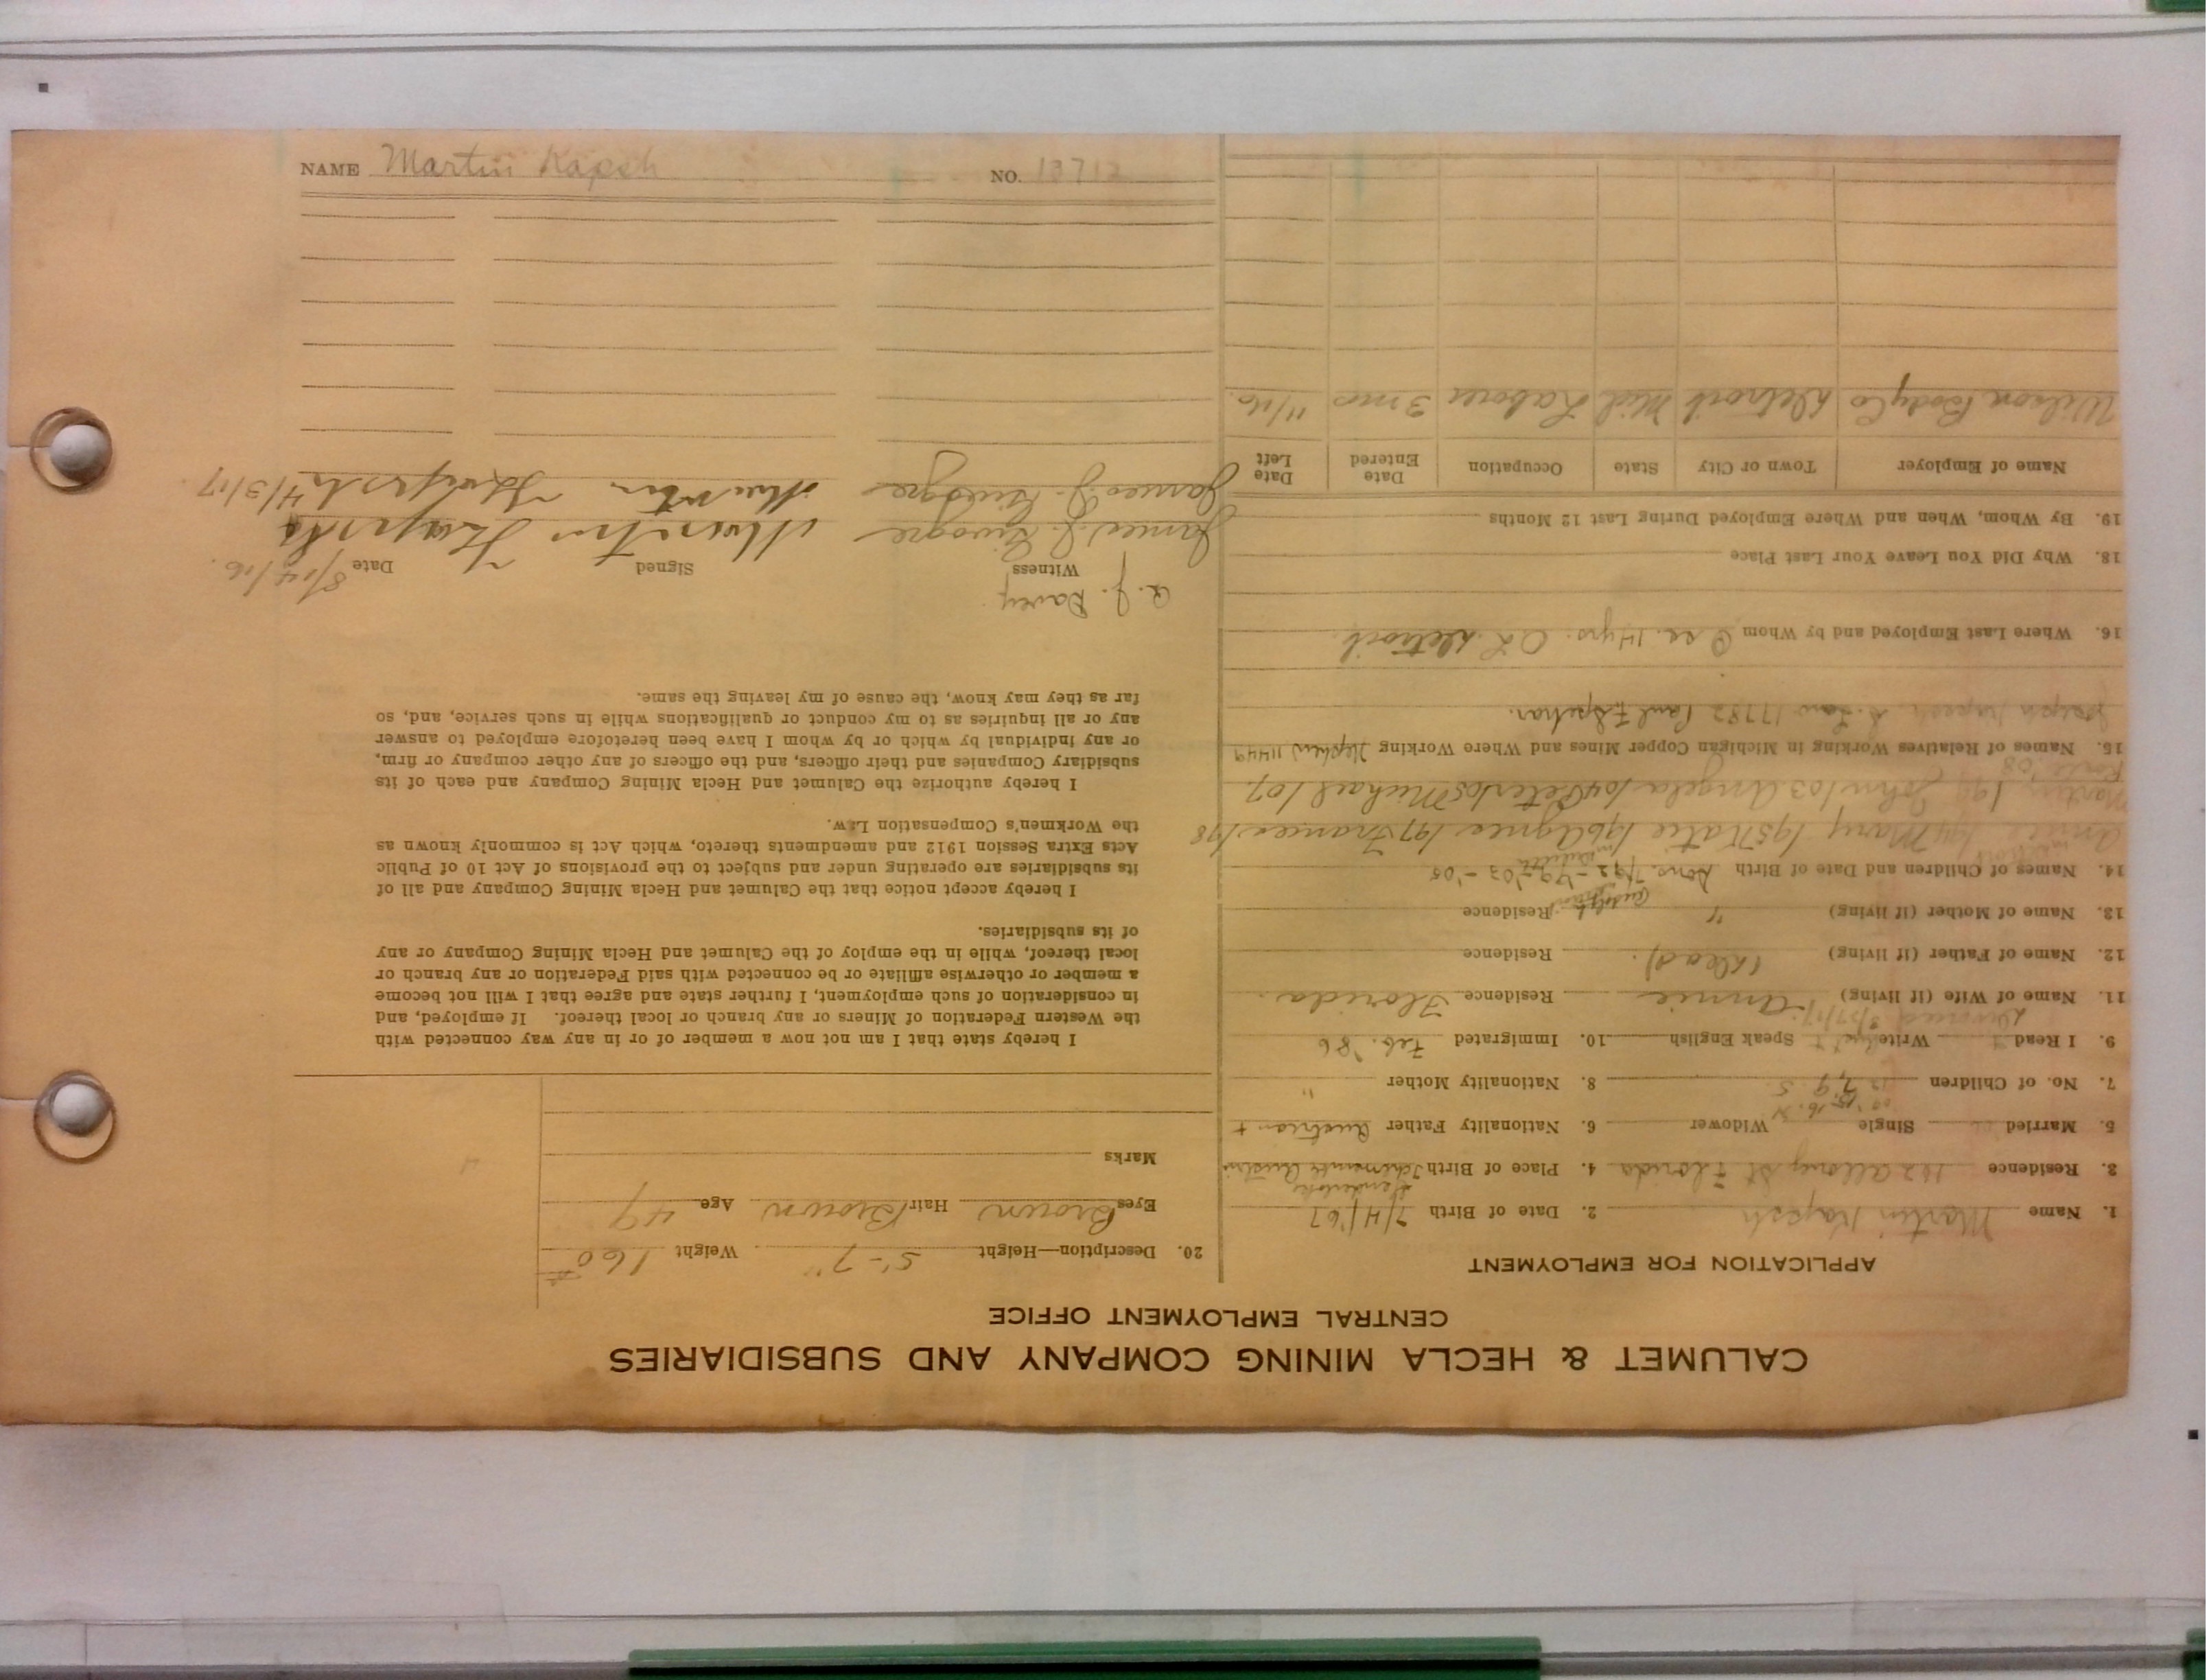 NAME Martin Kapsh NO. 13712
CALUMET & HECLA MINING COMPANY AND SUBSIDIARIES
CENTRAL EMPLOYMENT OFFICE
APPLICATION FOR EMPLOYMENT
1. Name Martin Kapsh 2. Date of Birth 7/4/'67
3. Residence 112 Albany St Florida 4. Place of Birth Austria
5. Married Single Widower 6. Nationality Father Austrian +
7. No. of Children 8. Nationality Mother "
9. I Read Write Speak English 10. Immigrated Feb. '86
Divorced 3/27/17
11. Name of Wife (if living) Annie Residence Florida.
12. Name of Father (if living) (Dead). Residence
13. Name of Mother (if living) " Residence
14. Names of Children and Date of Birth Sons
Annie Mary 195 Katie 196 Agnes 197 Frances 198
Martin 199 John 103 Angela 104 Peter 105 Michael 107.
15. Names of Relatives Working in Michigan Copper Mines and Where Working Stephen 11449
Joseph 17782 Paul
16. Where Last Employed and by Whom 14 yrs. Detroit.
18. Why Did You Leave Your Last Place
19. By Whom, When and Where Employed During Last 12 Months
Name of Employer Town or City State Occupation Date Entered Date Left
Wilson Body Co Detroit Mich Laborer 3 mos 11/16.
20. Description—Height 5'-7" Weight 160 #
Eyes Brown Hair Brown Age 49
Marks
I hereby state that I am not now a member of or in any way connected with
the Western Federation of Miners or any branch or local thereof. If employed, and
in consideration of such employment, I further state and agree that I will not become
a member or otherwise affiliate or be connected with said Federation or any branch or
local thereof, while in the employ of the Calumet and Hecla Mining Company or any
of its subsidiaries.
I hereby accept notice that the Calumet and Hecla Mining Company and all of
its subsidiaries are operating under and subject to the provisions of Act 10 of Public
Acts Extra Session 1912 and amendments thereto, which Act is commonly known as
the Workmen's Compensation Law.
I hereby authorize the Calumet and Hecla Mining Company and each of its
subsidiary Companies and their officers, and the officers of any other company or firm,
or any individual by which or by whom I have been heretofore employed to answer
any or all inquiries as to my conduct or qualifications while in such service, and, so
far as they may know, the cause of my leaving the same.
A. J. Davey 8/14/16.
Witness Signed Date
James J. Martin Kapsh
James J. Martin Kapsh 4/3/17